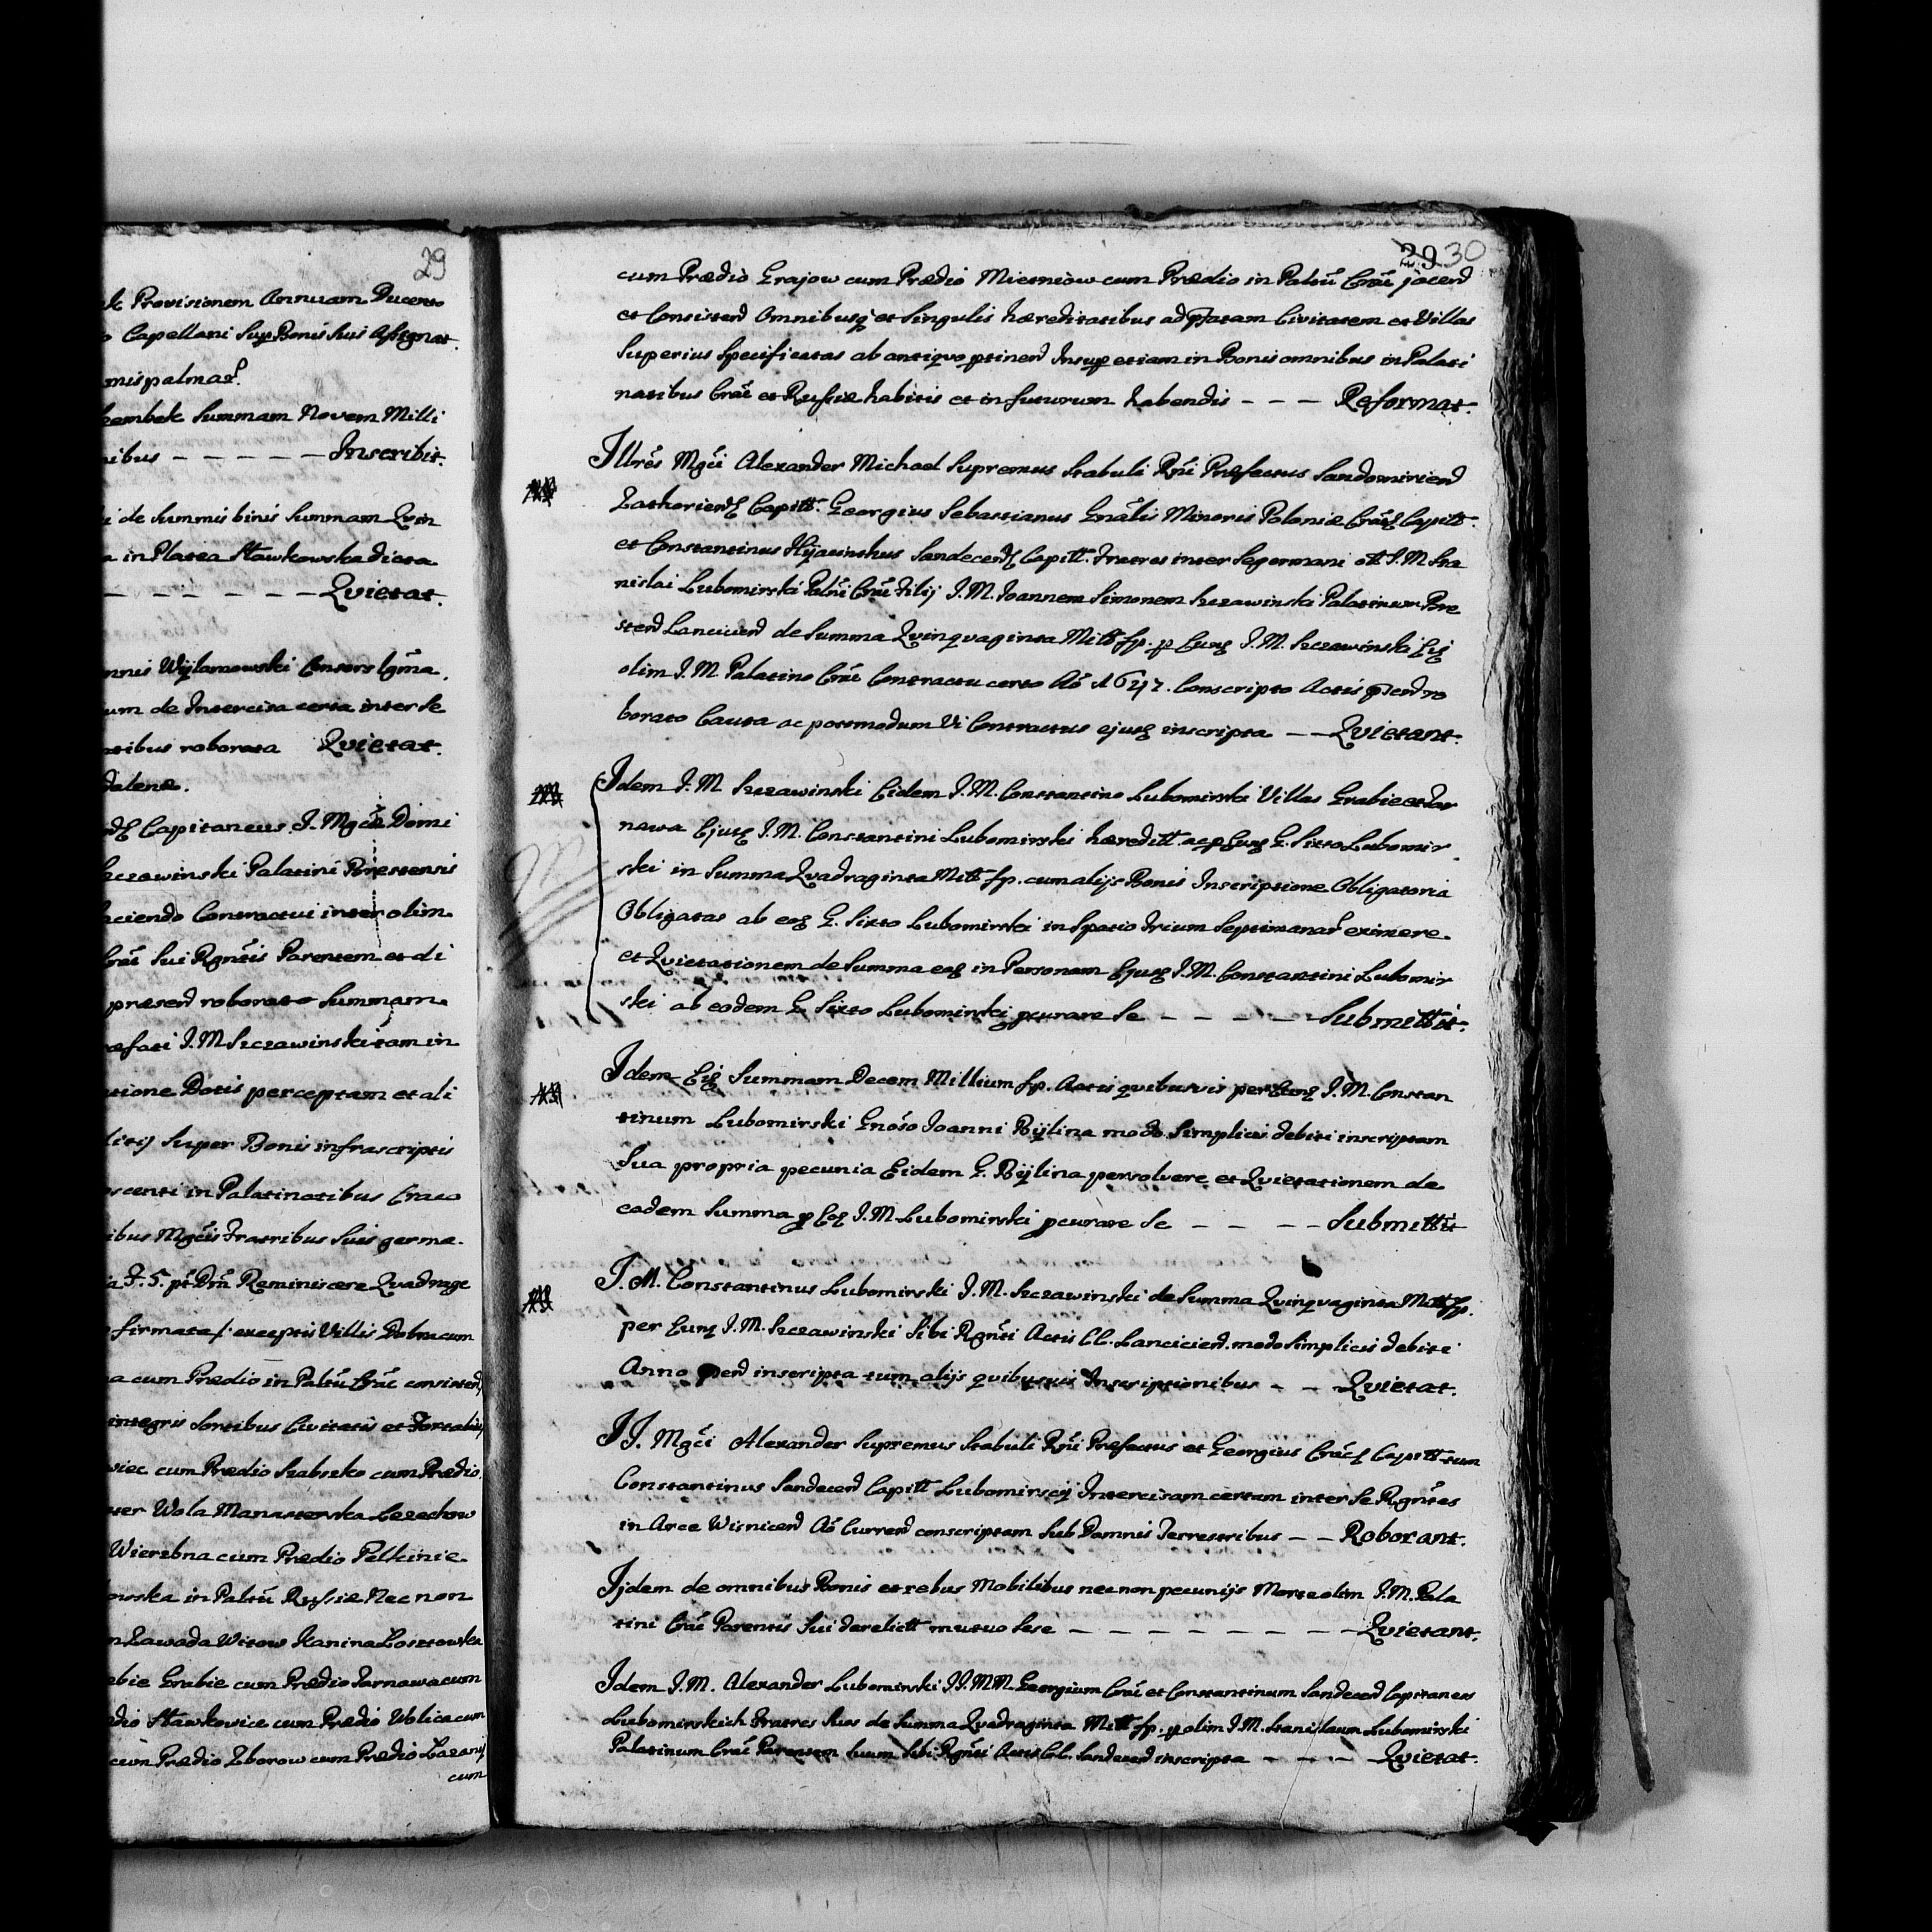 29
k Provisionem Annuam Ducento
o Capellani Sup Bonis suis Assignat.
mis palmar.
kembek Summam Novem Milli
ibus – – – – – Inscribit.
i de Summis binis Summam Qvin
a in Platea Stawkowska dicta
– – – – – – Qvietat.
nnis Wijlamowski Consors lgma.
um de Intercisa certa inter se
atibus roborata Qvietat.
dalenæ.
Capitaneus J. Mgca Domi
czawinski Palatini Brestensis
aciendo Contractui inter olim
Crac Sui Rgntis Parentem et di
præsen roborato Summam
æfati J. M Szczawinski tam in
atione Dotis perceptam et ali
litij Super Bonis infrascriptis
scenti in Palatinatibus Craco
ibus Mgcis Fratribus Suis germa.
a F. 5. pt Dni Reminiscere Quadrage
firmata /: exceptis Villis Dobra cum
a cum Prædio in Paltu Crac consisten
integris Sortibus Civitatis et Fortalitij
wiec cum Prædio Szabsko cum Prædio
ter Wola Manasterska Lezachow
Wierzbna cum Prædio Pelkinie
owska in Paltu Russiæ Nec non
n Zawada Witow Kanina Losztowka
ebie Grabie cum Prædio Tarnawa cum
dio Stawkowice cum Prædio Wolica cum
cum Prædio Zborow cum Prædio Lazany
cum
29 30
cum Prædio Grajow cum Prædio Mietniow cum Prædio in Paltu Crac jacen
et Consisten Omnibusq et Singulis hæreditatibus ad pfatam Civitatem et Villas
Superius Specificatas ab antiqvo ptinen Insup etiam in Bonis omnibus in Palati
natibus Crac et Russiæ habitis et in futurum habendis – – – Reformat.
Illres Mgci Alexander Michael Supremus Stabuli Rni Præfectus Sandomirien
Zathorienq Capitt. Georgius Sebastianus Gnalis Minoris Poloniæ Cracq Capitt.
et Constantinus Hijacinthus Sandecenq Capitt. Fratres inter se germani ol J. M. Sta
nislai Lubomirski Paltni Crac Filij J. M. Joannem Simonem Szczawinski Palatinum Bre
sten Lancicien de Summa Qvinqvaginta Mill fp. p Eunq J. M. Szczawinski Eiq
olim J. M Palatino Crac Contractu certo Ao 1647. Conscripto Actis pnr ro
borato Cauta ac postmodum Vi Contractus ejusq inscripta – – Qvietant.
Idem J. M Szczawinski Eidem J. M. Constantino Lubomirski Villas Grabie et Tar
nawa Ejusq J. M. Constantini Lubomirski hæreditt. ac p Eunq G. Sixto Lubomir
ski in Summa Qvadraginta Mill fp. cum alijs Bonis Inscriptione Obligatoria
Obligatas ab eoq G. Sixto Lubomirski in Spatio Trium Septimanar eximere
et Qvietationem de Summa eaq in Personam Ejusq J. M. Constantini Lubomir
ski ab eodem G. Sixto Lubomirski pcurare Se – – – – – Submittit.
Idem Eiq Summam Decem Millium fp. Actis qvibusvis per Eunq J. M. Constan
tinum Lubomirski Gnoso Joanni Bijlina modo Simplicis debiti inscriptam
Sua propria pecunia Eidem G. Bijlina persolvere et Qvietationem de
eadem Summa p Eoq J. M. Lubomirski pcurare Se – – – – Submittit
J. M. Constantinus Lubomirski J. M. Szczawinski de Summa Qvinqvaginta Mill fp.
per Eunq J. M. Szczawinski Sibi Rgnti Actis CC. Lancicien. modo Simplicis debiti
Anno pnr inscripta tum alijs qvibusvis Inscriptionibus – – Qvietat.
JJ. Mgci Alexander Supremus Stabuli Rni Præfectus et Georgius Cracq Capitt tum
Constantinus Sandecen Capitt Lubomirscij Intercisam certam inter Se Rgntes
in Arce Wisnicen Ao Curren conscriptam Sub Damnis Terrestribus – – Roborant.
Ijdem de omnibus Bonis et rebus Mobilibus nec non pecunijs Morte olim J. M. Pala
tini Crac Parentis Sui derelictt mutuo sese – – – – – – – – Qvietant.
Idem J. M. Alexander Lubomirski JJ. MM. Georgium Crac et Constantinum Sandecen Capitaneos
Lubomirskich Fratres Suos de Summa Qvadraginta Mill fp. p olim J. M. Stanislaum Lubomirski
Palatinum Crac Parentem Suum Sibi Rgnti Actis CC. Sandecen inscripta – – – – Qvietat.